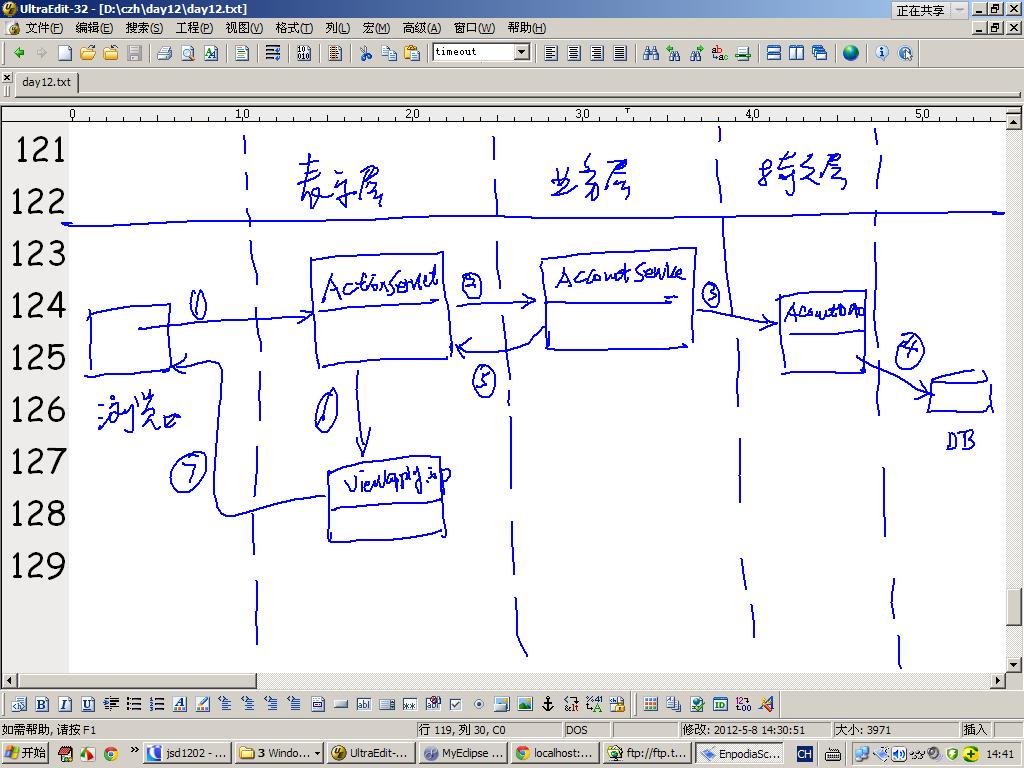 UltraEdit-32 - [D:\czh\day12\day12.txt]
正在共享
文件(F) 编辑(E) 搜索(S) 工程(P) 视图(V) 格式(T) 列(L) 宏(M) 高级(A) 窗口(W) 帮助(H)
timeout
day12.txt
0 10 20 30 40 50
121
122
123
124
125
126
127
128
129
表示层 业务层 持久层
ActionServlet ② AccountService ③ AccountDAO
①
⑤ ④
浏览口
DB
⑦
viewapply.jsp
如需帮助, 请按 F1 行 119, 列 30, C0 DOS 修改: 2012-5-8 14:30:51 大小: 3971 插入
开始 jsd1202 - ... 3 Windo... UltraEdit-... MyEclipse ... localhost:... ftp://ftp.t... EnpodiaSc... CH 14:41